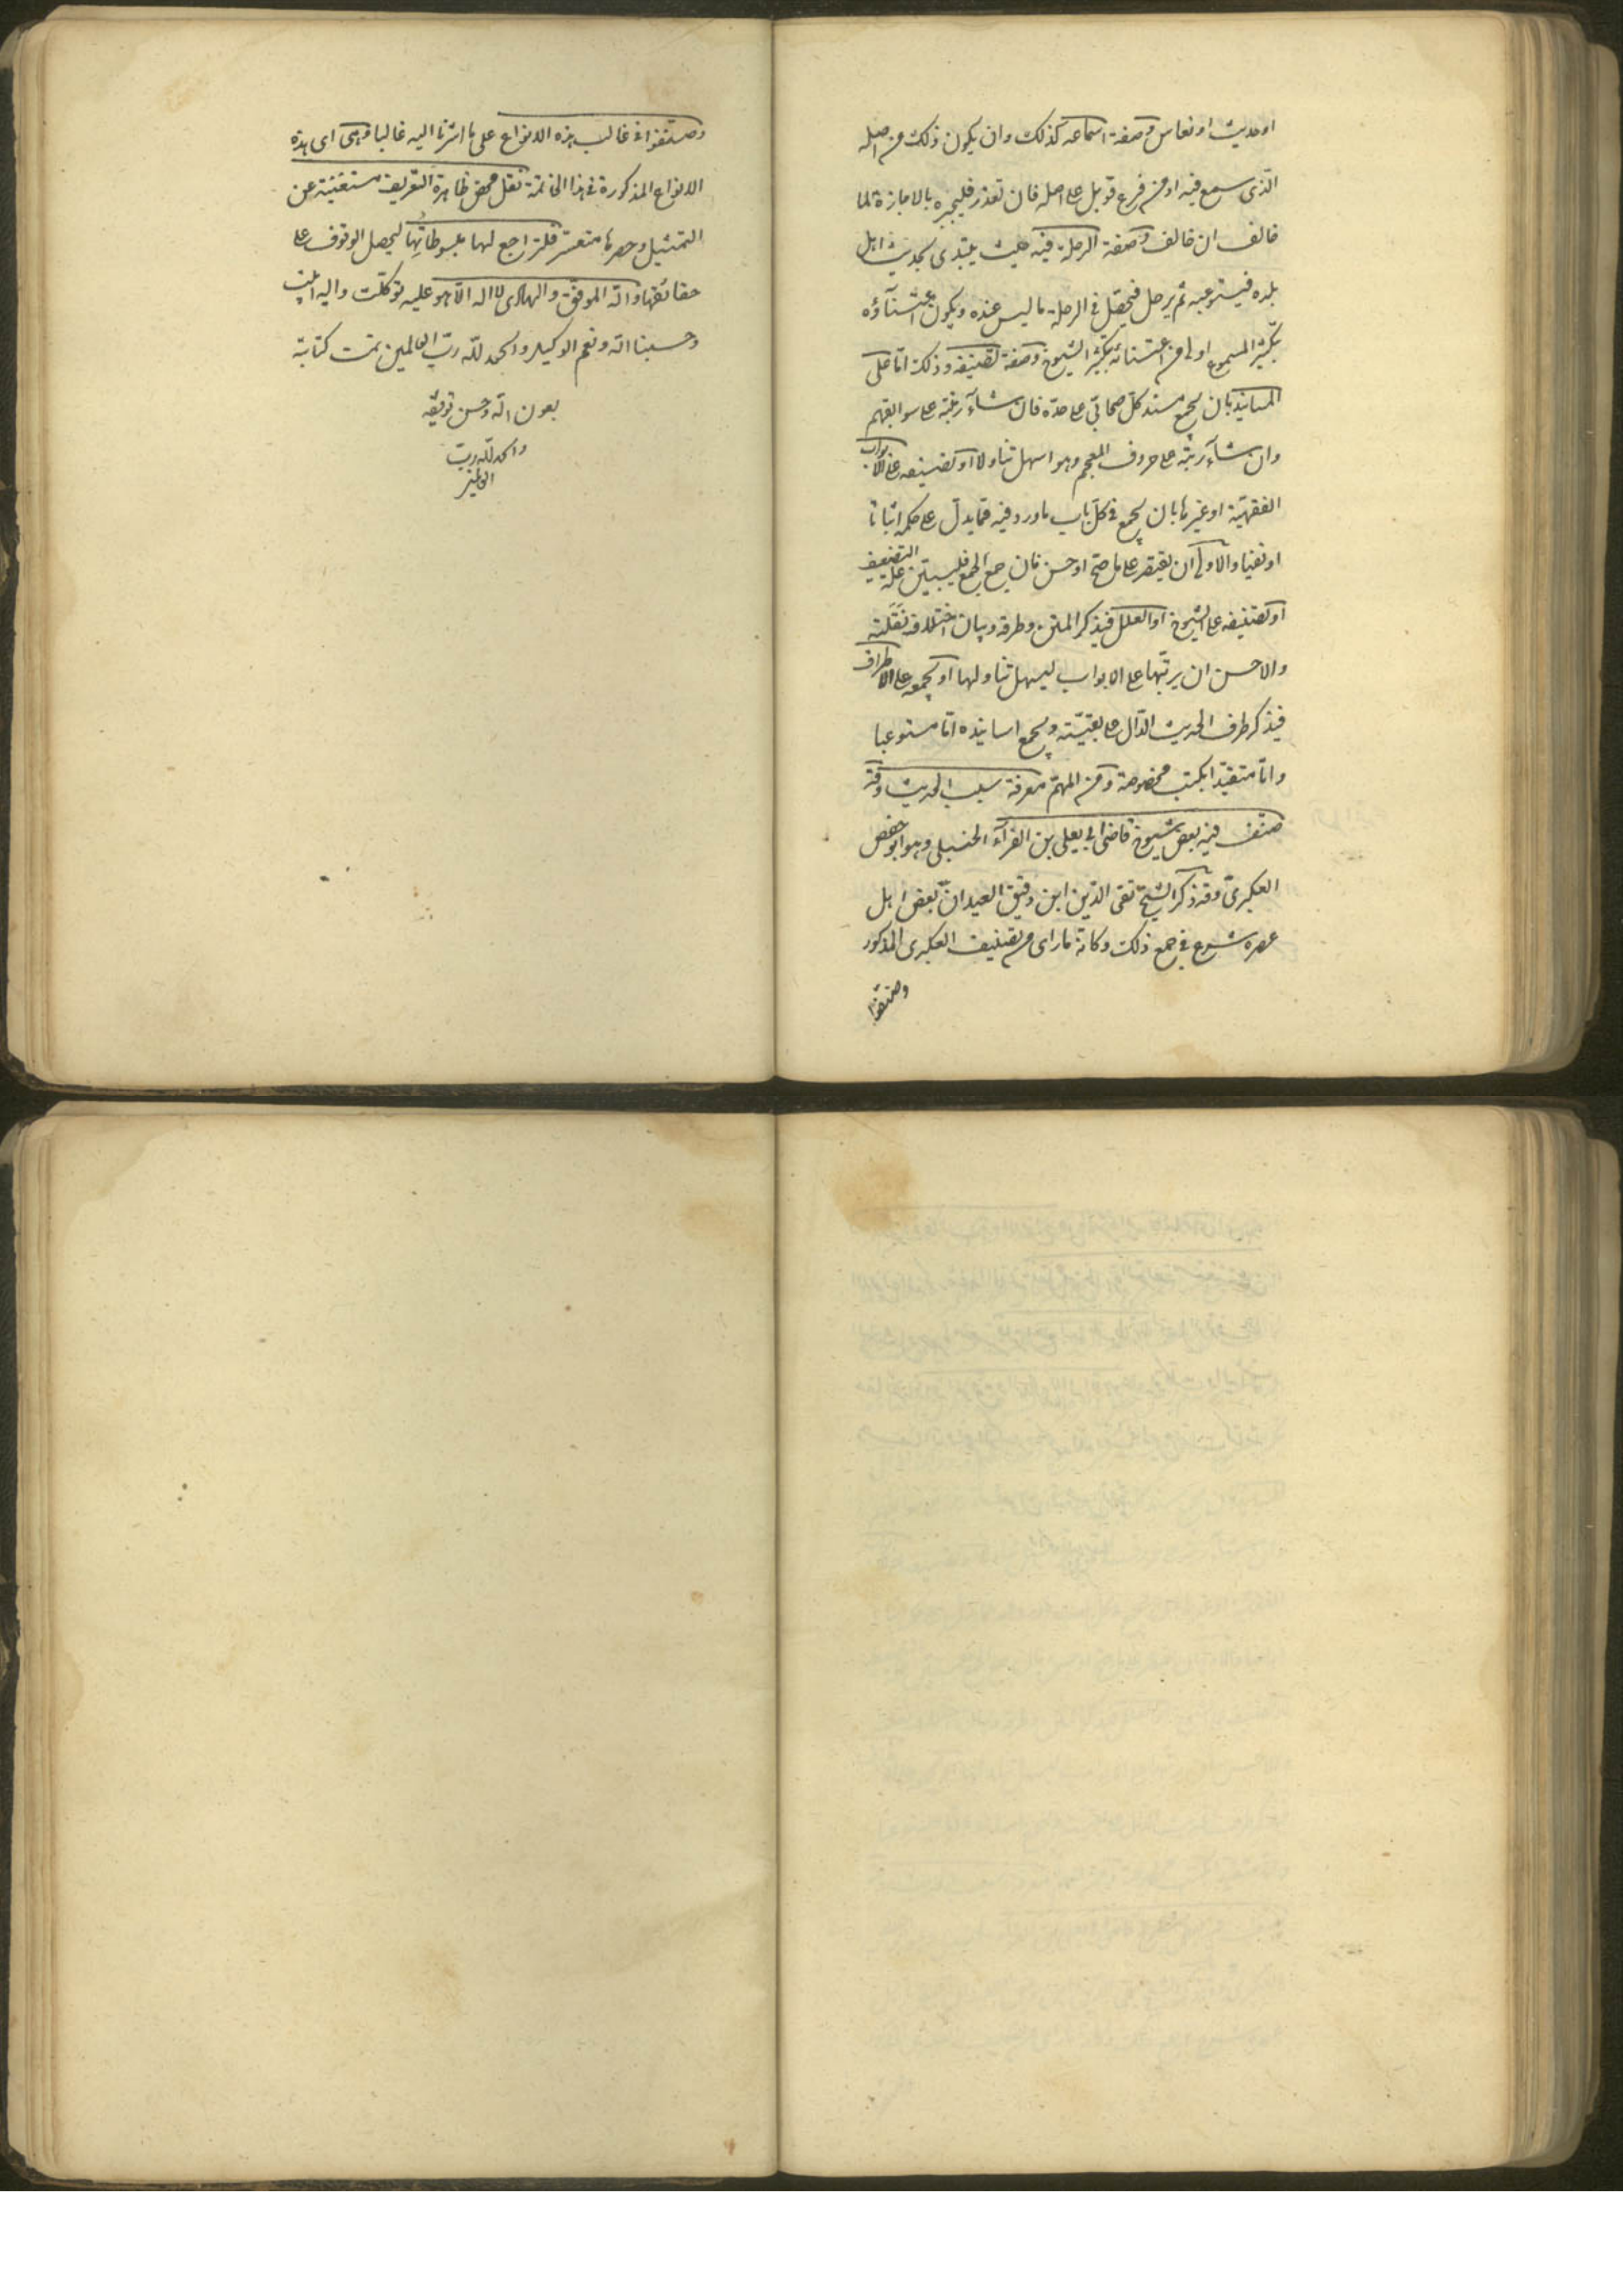 او حديث او نعاس وصفة اسماعه كذلك وان يكون ذلك من اصله
الّذى سمع فيه او من فرع قوبل على اصله فان تعذر فليجبره بالاجازة لما
خالف ان خالف وصفة الرحلة فيه حيث يبتدى بحديث اهل
بلده فيستوعبه ثم يرحل فيحصّل فى الرحلة ما ليس عنده ويكون اعتناؤه
بتكثير المسموع اولى من اعتنائه بتكثير الشيوخ وصفة تصنيفه وذلك امّا على
المسانيد بان يجمع مسند كلّ صحابّى على حدة فان شآء رتبه على سوابقهم
وان شآء رتبّه على حروف المعجم وهو اسهل تناولا او تصنيفه على الابواب
الفقهيّة او غيرها بان يجمع فى كلّ باب ما ورد فيه ممّا يدلّ على حكمه اثباتا
او نفيا والاولى ان يقتصر على ما صحّ او حسن فان جمع الجميع فليبيّن علّة التضعيف
او تصنيفه على الشيوخ او العلل فيذكر المتن وطرقه وبيان اختلاف نقلته
والاحسن ان يرتّبها على الابواب ليسهل تناولها او يجمعه على الاطراف
فيذكر طرف الحديث الدّال على بقيّته ويجمع اسانيده امّا مستوعبا
وامّا متقيّدا بكتب مخصوصة ومن المهمّ معرفة سبب الحديث وقد
صنّف فيه بعض شيوخ قاضى ابى يعلى بن الفرّآء الحنبلى وهو ابو حفص
العكبرىّ وقد ذكر الشيخ تقى الدّين ابن دقيق العيد انّ بعض اهل
عصره شرع فى جمع ذلك وكانّه ما راى تصنيف العكبرى المذكور
وصنّفوا
وصنّفوا فى غالب هذه الانواع على ما اشرنا اليه غالبا وهى اى هذه
الانواع المذكورة فى هذا الخاتمة نقل محض ظاهرة التعريف مستغنية عن
التمثيل وحصرها متعسّر فلتراجع لها مبسوطاتها ليحصل الوقوف على
حقائقها والله الموفق والهادى لا اله الّا هو عليه توكّلت واليه انيب
وحسبنا الله ونعم الوكيل والحمد للّه ربّ العالمين تمت كتابة
بعون الله وحسن توفيقه
والحمد للّه ربّ
العالمين